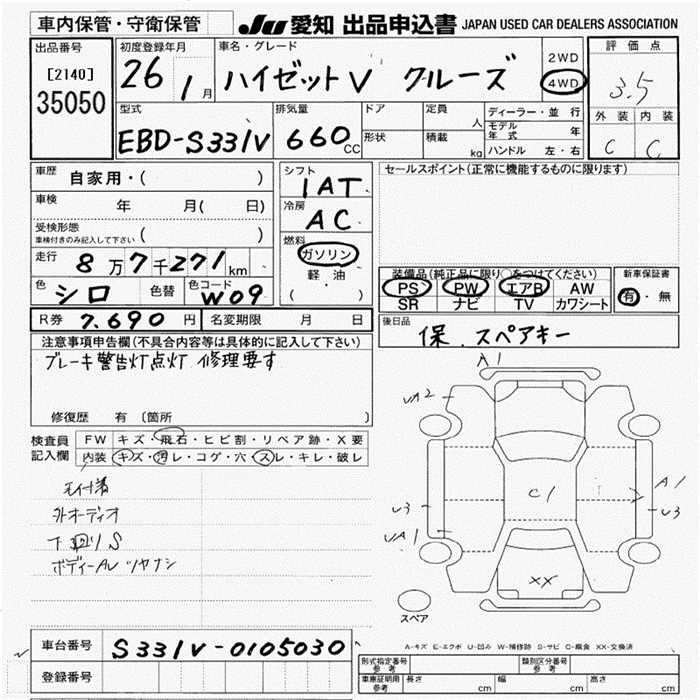 車内保管・守衛保管 JU 愛知 出品申込書 JAPAN USED CAR DEALERS ASSOCIATION
出品番号
[2140]
35050
初度登録年月
26 1月
車名・グレード
ハイゼットV クルーズ
2WD
4WD
評価点
3.5
外装 内装
C C
型式
EBD-S331V
排気量
660 CC
ドア
形状
定員
人
積載
kg
ディーラー・並行
モデル年式 年
ハンドル 左・右
車歴 自家用・( )
車検 年 月( 日)
受検形態
車検付きのみ記入して下さい ( )
走行 8万7千271km
色 シロ 色替 色コード W09
シフト
1AT
冷房
AC
燃料
ガソリン
軽・油
( )
セールスポイント(正常に機能するものに限ります)
装備品(純正品に限り○をつけてください)
PS PW エアB AW
SR ナビ TV カワシート
新車保証書
有・無
R券 7.690円 名変期限 月 日
後日品
保.スペアキー
注意事項申告欄(不具合内容等は具体的に記入して下さい)
ブレーキ警告灯点灯 修理要す
修復歴 有 〔箇所
検査員記入欄
FW キズ・飛石・ヒビ割・リペア跡・X要
内装 キズ・汚レ・コゲ・穴・スレ・キレ・破レ
外オーディオ
下回りS
ボディーAL ツヤナシ
A1
UA2
C1
U3
UA1
A1
U3
XX
スペア
A-キズ E-エクボ U-凹み W-補修跡 S-サビ C-腐食 XX-交換済
車台番号 S331V-0105030
登録番号
型式指定番号 参考
類別区分番号 参考
車庫証明用 参考 長さ cm 幅 cm 高さ cm